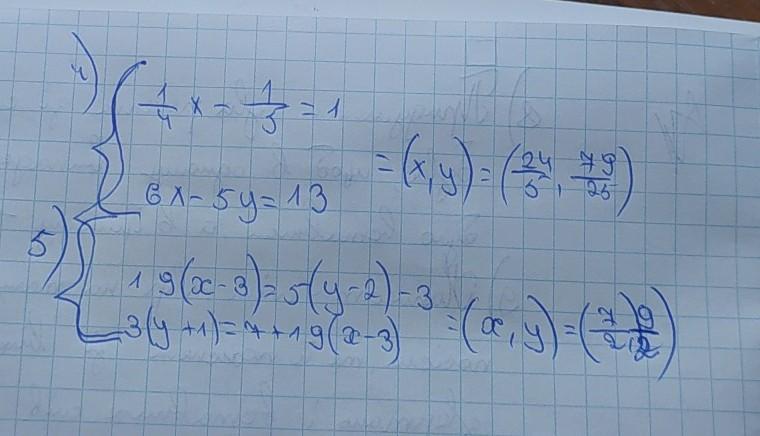 4) { 1/4 x - 1/5 = 1
6x - 5y = 13 = (x, y) = (24/5, 79/25)
5) { 19(x-3) = 5(y-2) - 3
3(y+1) = 7 + 19(x-3) = (x, y) = (7/2, 9/2)